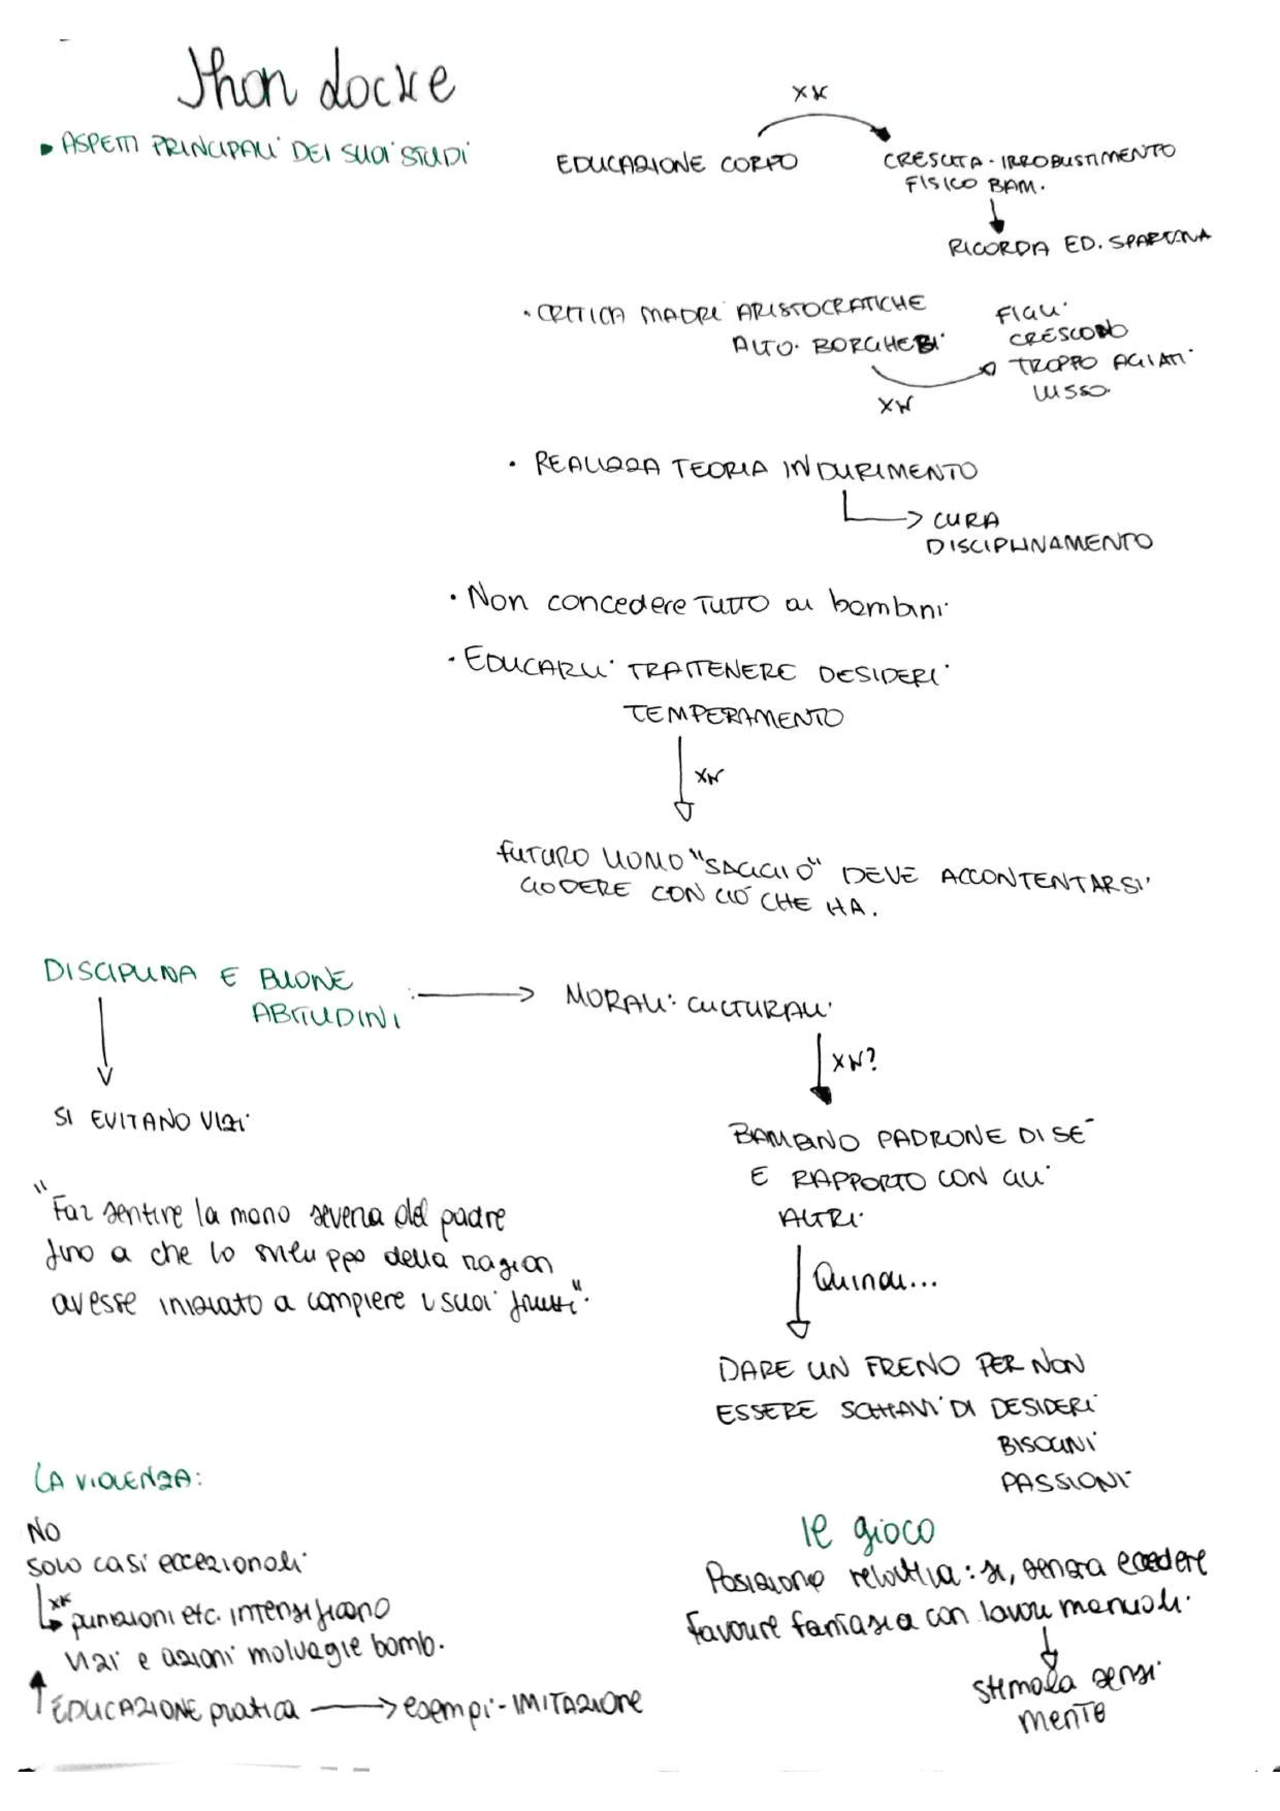 Jhon Locke
▸ ASPETTI PRINCIPALI DEI SUOI STUDI
XK
EDUCAZIONE CORPO
CRESCITA - IRROBUSTIMENTO
FISICO BAM.
RICORDA ED. SPARTANA
• CRITICA MADRI ARISTOCRATICHE
ALTO-BORGHESI
FIGLI
CRESCONO
TROPPO AGIATI
LUSSO
XK
• REALIZZA TEORIA INDURIMENTO
CURA
DISCIPLINAMENTO
• Non concedere TUTTO ai bambini
• EDUCARLI TRATTENERE DESIDERI
TEMPERAMENTO
XK
FUTURO UOMO "SAGGIO" DEVE ACCONTENTARSI
GODERE CON CIÒ CHE HA.
DISCIPLINA E BUONE
ABITUDINI
MORALI: CULTURALI
XK?
SI EVITANO VIZI
BAMBINO PADRONE DI SÉ
E RAPPORTO CON GLI
ALTRI
"Far sentire la mano severa del padre
fino a che lo sviluppo della ragion
avesse iniziato a compiere i suoi frutti".
Quindi...
DARE UN FRENO PER NON
ESSERE SCHIAVI DI DESIDERI
BISOGNI
PASSIONI
LA VIOLENZA:
NO
solo casi eccezionali
XK
punizioni etc. intensificano
vizi e azioni malvagie bamb.
EDUCAZIONE pratica → esempi - IMITAZIONE
Il gioco
Posizione relativa: si, senza eccedere
favorire fantasia con lavori manuali
stimola sensi
mente